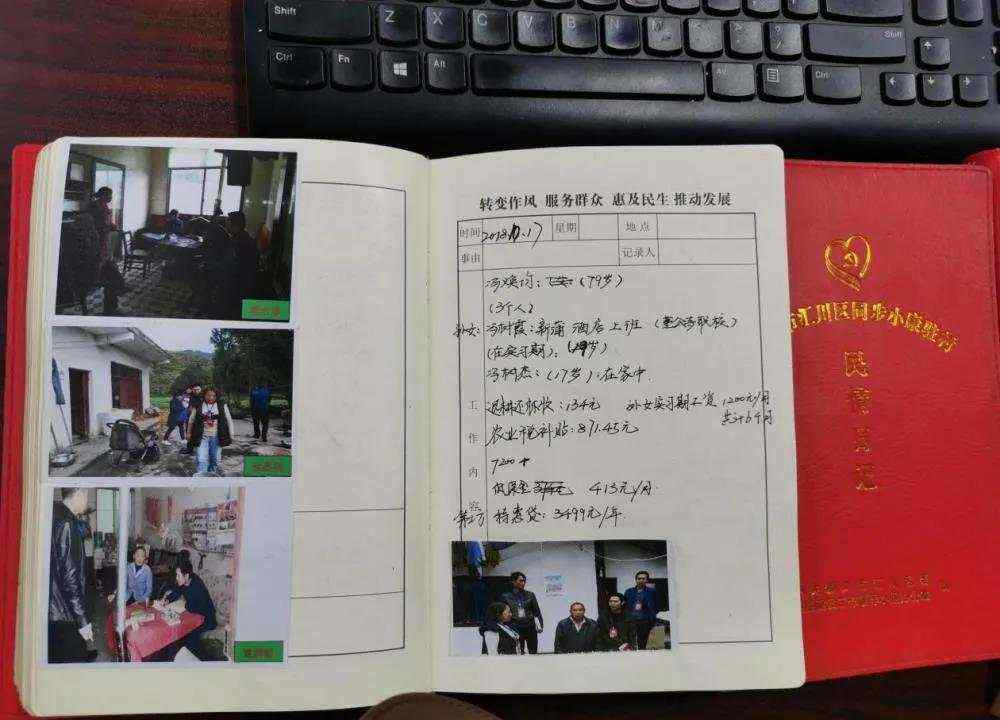 转变作风 服务群众 惠及民生 推动发展
时间 2018.10.17 星期 地点
事由 记录人
(79岁)
(3个人)
外女: 冯树霞: 新蒲酒店上班
(在实习期): (19岁)
冯树杰: (17岁): 在家中.
工作内容
退耕还林款: 134元 外女实习期工资 1200元/月
共计6个月
农业税补贴: 871.45元
7200+
低保金 413元/月.
特惠贷: 3499元/年.
汇川区同步小康驻村
民情日记
Shift
Z X C V B N M
Shift
Ctrl
Fn
Alt
Ctrl